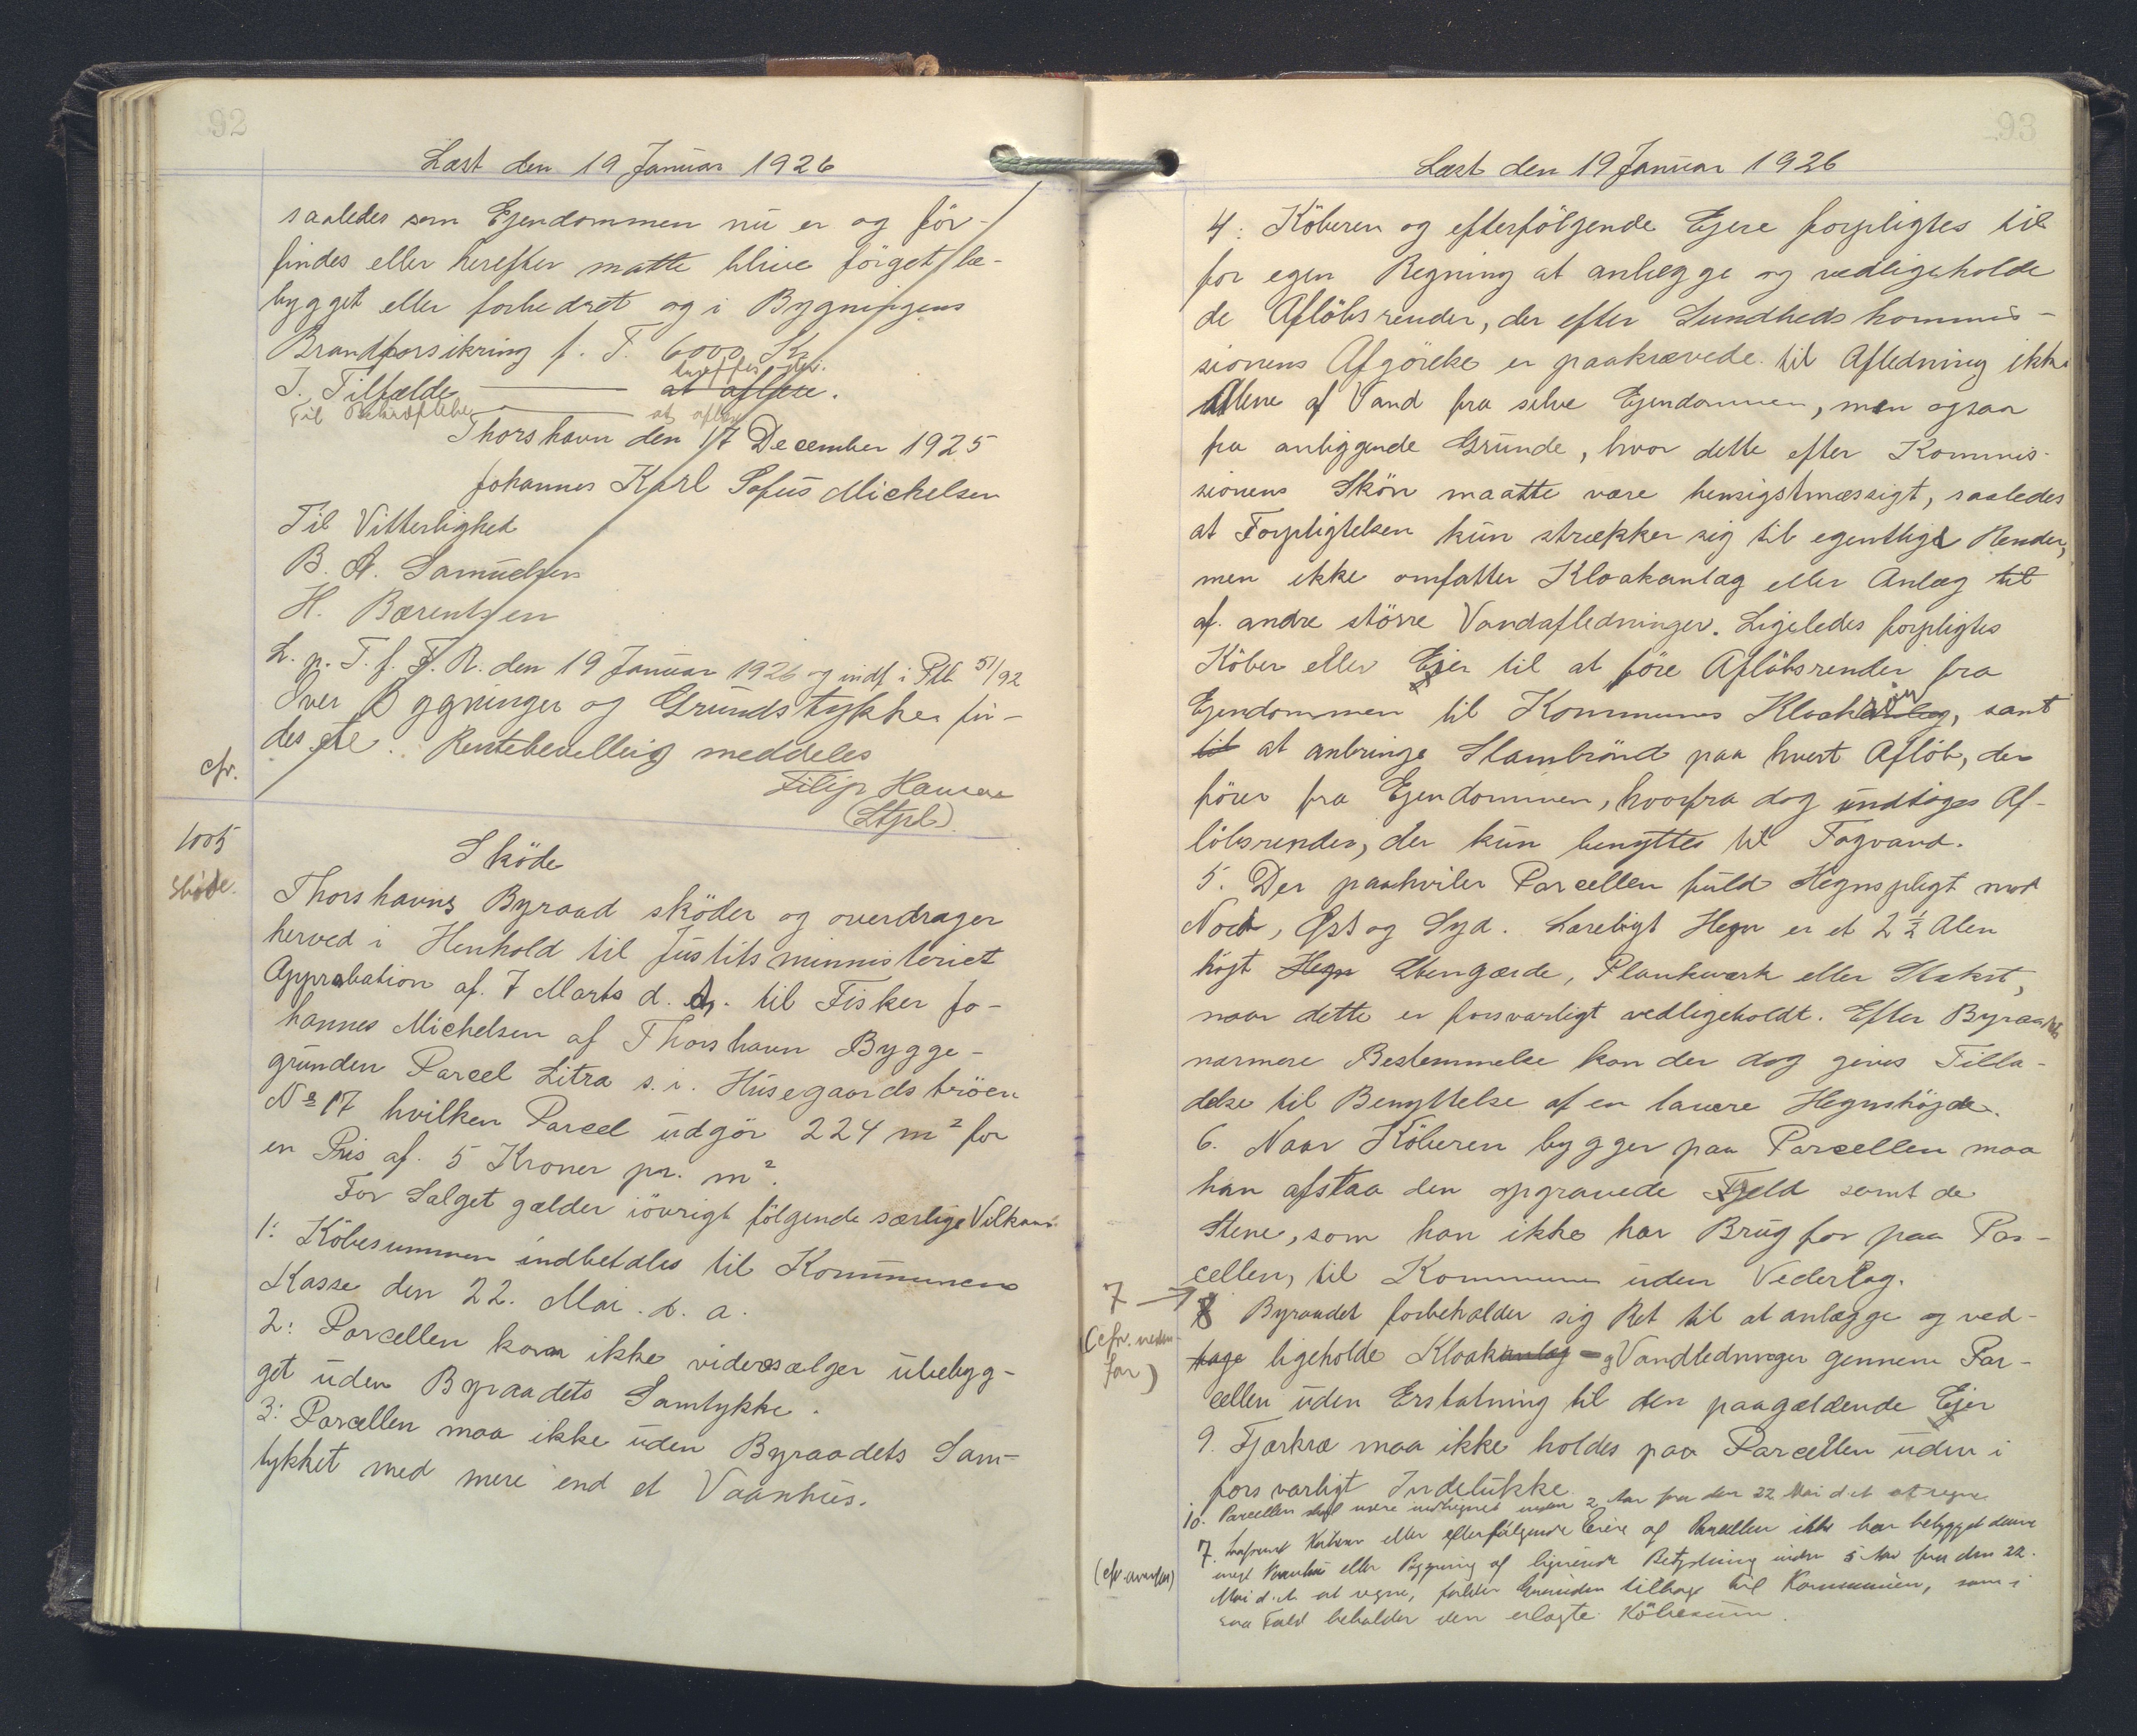 92
Læst den 19 Januar 1926
saaledes som Ejendommen nu er og för-
findes eller herefter matte blive föröget, be-
bygget eller forbedret og i Bygningens
Brandforsikring p. T. 6000 Kr.
I. Tilfælde ——— at aflæse.
Til ——— at
Thorshavn den 17 December 1925
Johannes Karl Sofus Mickelsen
Til Vitterlighed
B. A. Samuelsen
H. Bærentsen
L. p. T. f. F. R. den 19 Januar 1926 og indf i Ptb 51/92
Over Bygninger og Grundstykke fin-
des etc. Rentebevilling meddeles
cfr.
Filip Hansen
(Stpl.)
1005
Sköde.
Sköde
Thorshavns Byraad sköder og overdrager
herved i Henhold til Justitsministeriet
Approbation af. 7 Marts d. A. til Fisker Jo-
hannes Michelsen af Thorshavn Bygge-
grunden Parcel Litra s. i. Husegaardströen
No 17 hvilken Parcel udgör 224 m2 for
en Pris af. 5 Kroner pr. m2.
For Salget gælder iövrigt fölgende særlige Vilkaar:
1: Köbesummen indbetales til Kommunens
Kasse den 22. Mai. d. a.
2: Parcellen kan ikke videresælger ubebyg-
get uden Byraadets Samtykke.
3: Parcellen maa ikke uden Byraadets Sam-
tykket med mere end et Vaanhus.
93
Læst den 19 Januar 1926
4: Köberen og efterfölgende Ejere forpligtes til
for egen Regning at anlægge og vedligeholde
de Aflöbsrender, der efter Sundhedskommis-
sionens Afgörelse er paakrævede til Afledning ikke
Allene af Vand fra selve Ejendommen, men ogsaa
fra anliggende Grunde, hvor dette efter Kommis-
sionens Skön maatte være hensigtmæssigt, saaledes
at Forpligtelsen kun strækker sig til egentlige Render,
men ikke omfatter Kloakanlæg eller Anlæg til
af. andre större Vandafledninger. Ligeledes forpligtes
Köber eller Ejer til at före Aflöbsrender fra
Ejendommen til Kommunes Kloakanlæg, samt
til at anbringe Slambrönd paa hvert Aflöb, der
förer fra Ejendommen, hvorfra dog undtages Af-
löbsrender, der kun benyttes til Tagvand.
5. Der paahviler Parcellen fuld Hegnspligt mod
Nord, Øst og Syd. Lovligt Hegn er et 2 1/2 Alen
höjt Hegn Stengærde, Plankeværk eller Stakit,
naar dette er forsvarligt vedligeholdt. Efter Byraadets
nærmere Bestemmelse kan der dog gives Tilla-
delse til Benyttelse af en lavere Hegnshöjde.
6. Naar Köberen bygger paa Parcellen maa
han afstaa den opgravede Fyeld samt de
Stene, som han ikke har Brug for paa Par-
cellen, til Kommunen uden Vederlag.
7 →
(cfr. neden-
for)
8 Byraadet forbeholder sig Ret til at anlægge og ved-
tage ligeholde Kloakanlæg - og Vandledninger gennem Par-
cellen uden Erstatning til den paagældende Ejer
9. Fjærkræ maa ikke holdes paa Parcellen uden i
forsvarligt Indelukke
10. Parcellen skal være indhegnet inden 2 Aar fra den 22 Mai d. A. at regne
7. Saafremt Köberen eller efterfølgende Ejere af Parcellen ikke har bebygget denne
med Vaanhus eller Bygning af lignende Betydning inden 5 Aar fra den 22.
(cfr. ovenfor)
Mai d. A. at regne, falder Grunden tilbage til Kommunen, som i
saa Fald beholder den erlagte Köbesum.